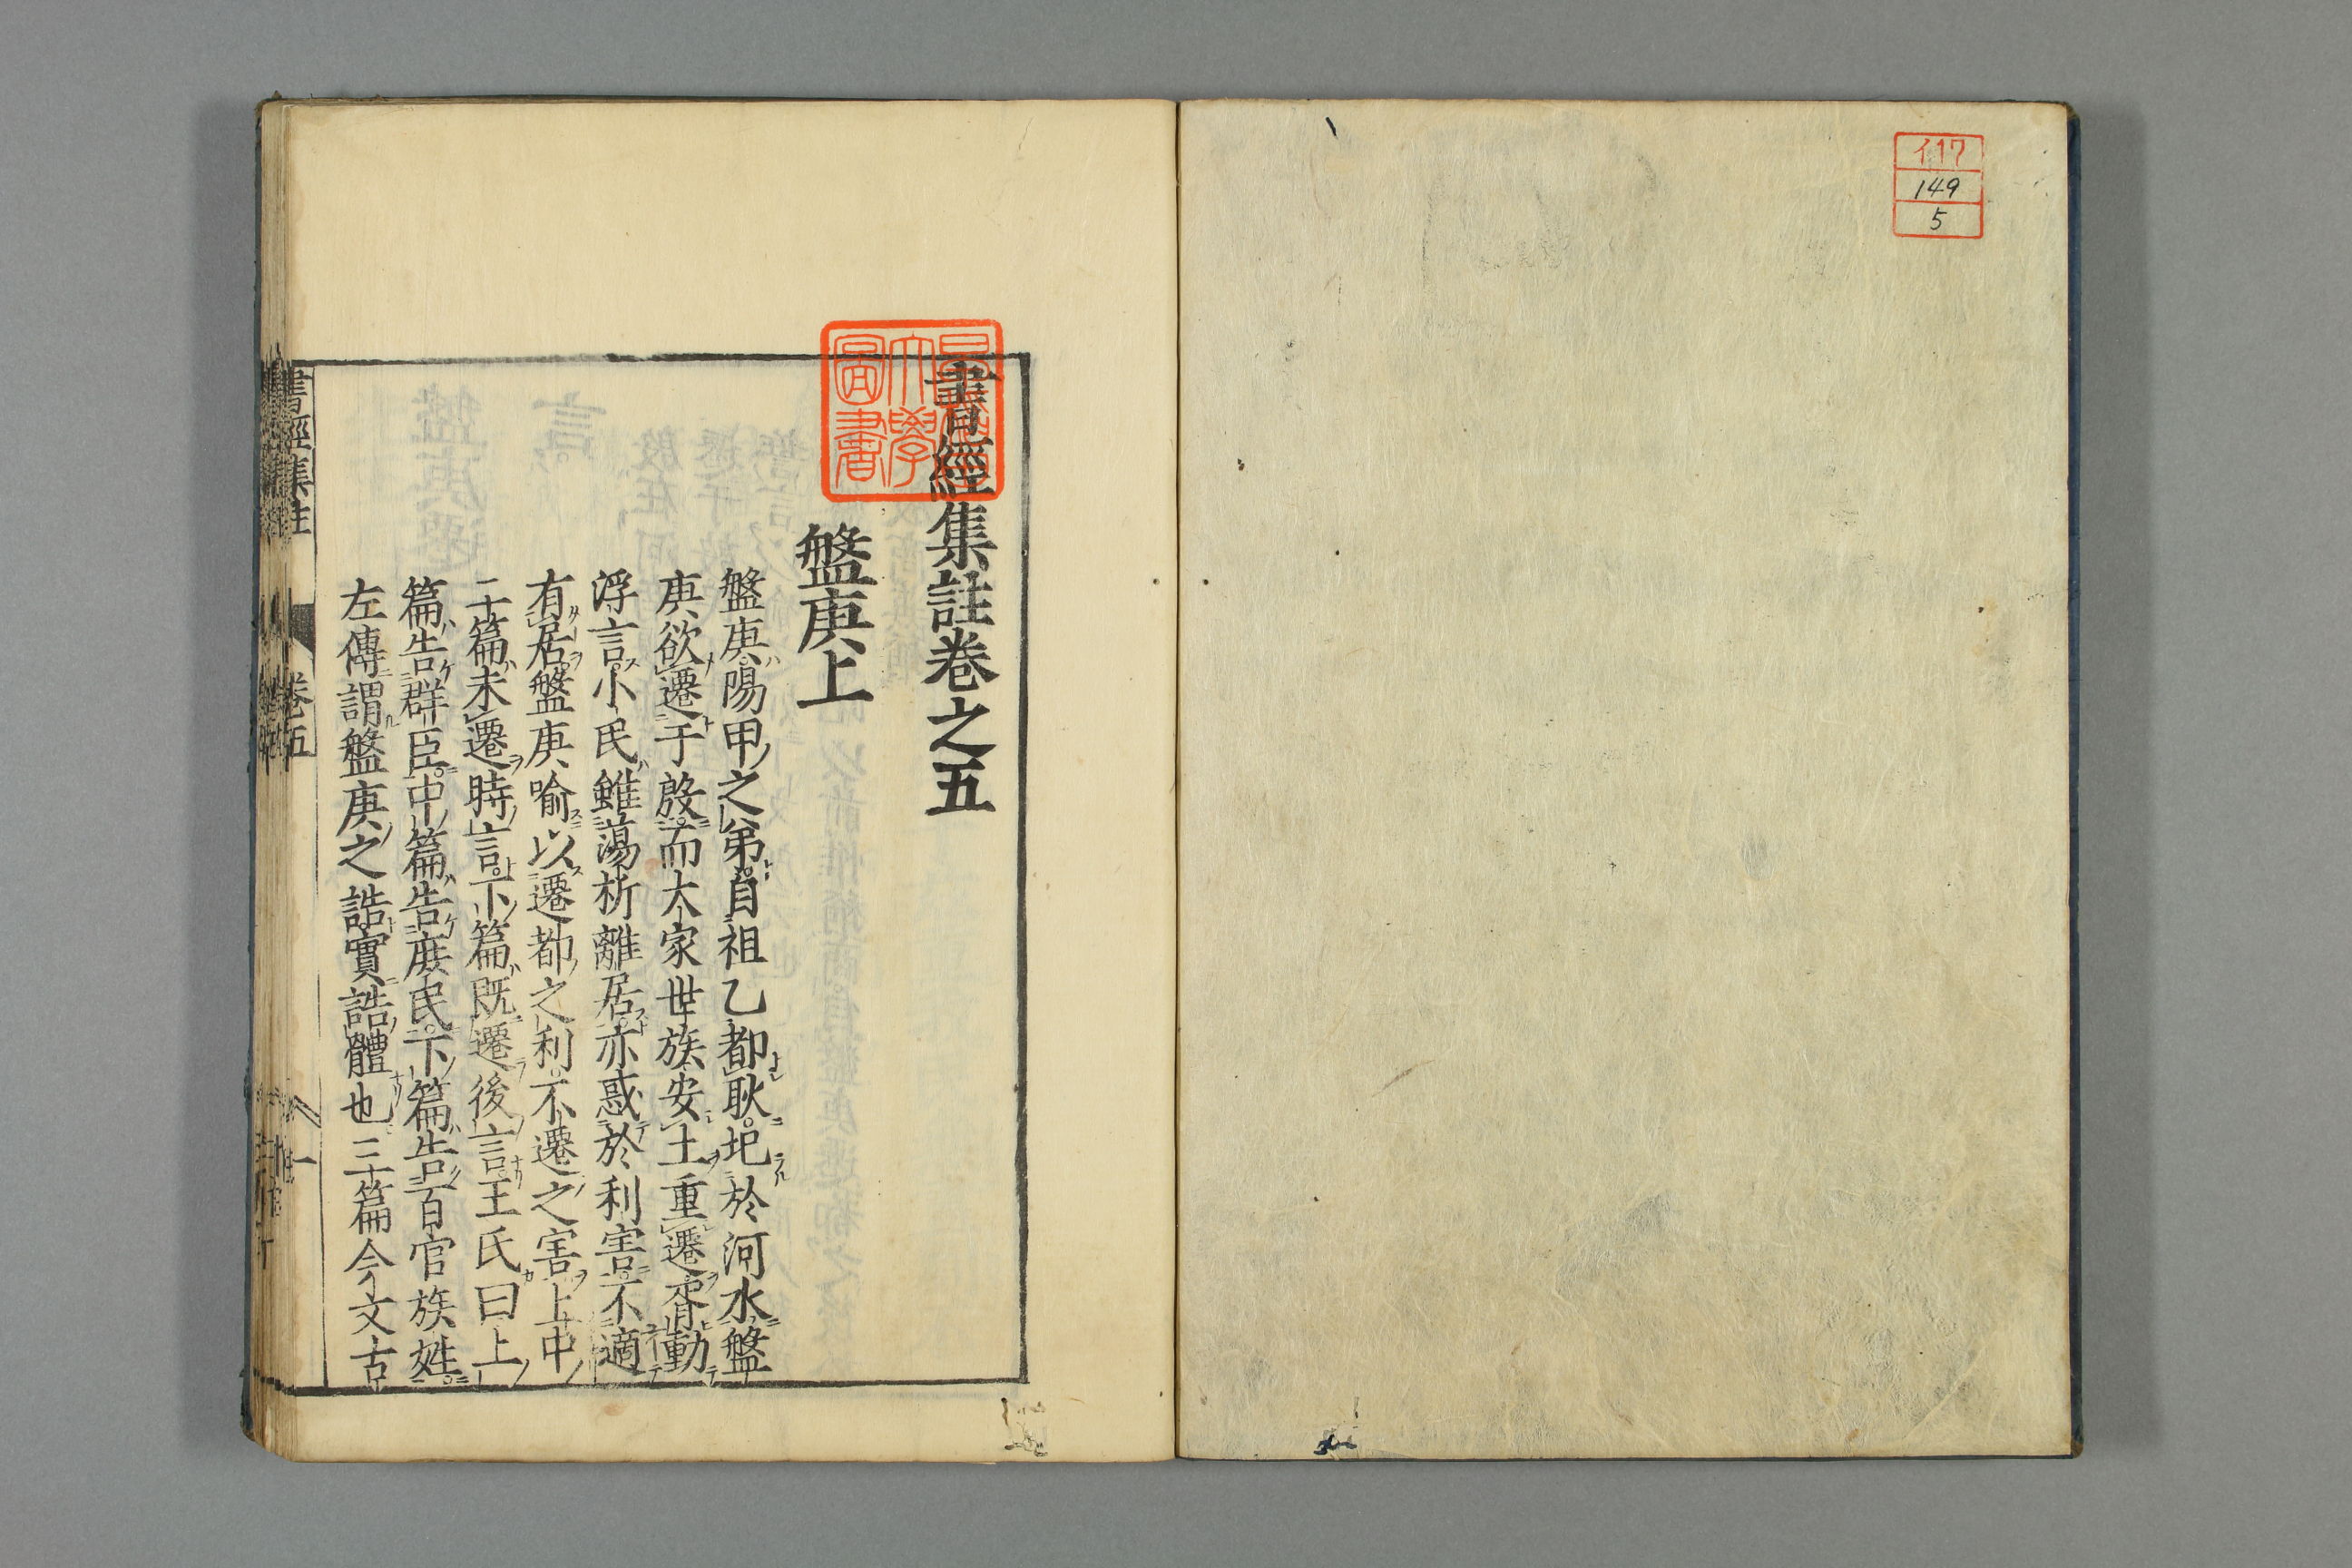 イ17
149
5
書經集註卷之五
盤庚上
盤庚陽甲之弟自祖乙都耿圯於河水盤
庚欲遷于殷而大家世族安土重遷胥動
浮言小民雖蕩析離居亦惑於利害不適
有居盤庚喻以遷都之利不遷之害上中
二篇未遷時言下篇既遷後言王氏曰上
篇告群臣中篇告庶民下篇告百官族姓
左傳謂盤庚之誥實誥體也三篇今文古
書經集註 卷五 一
早稻田大學圖書